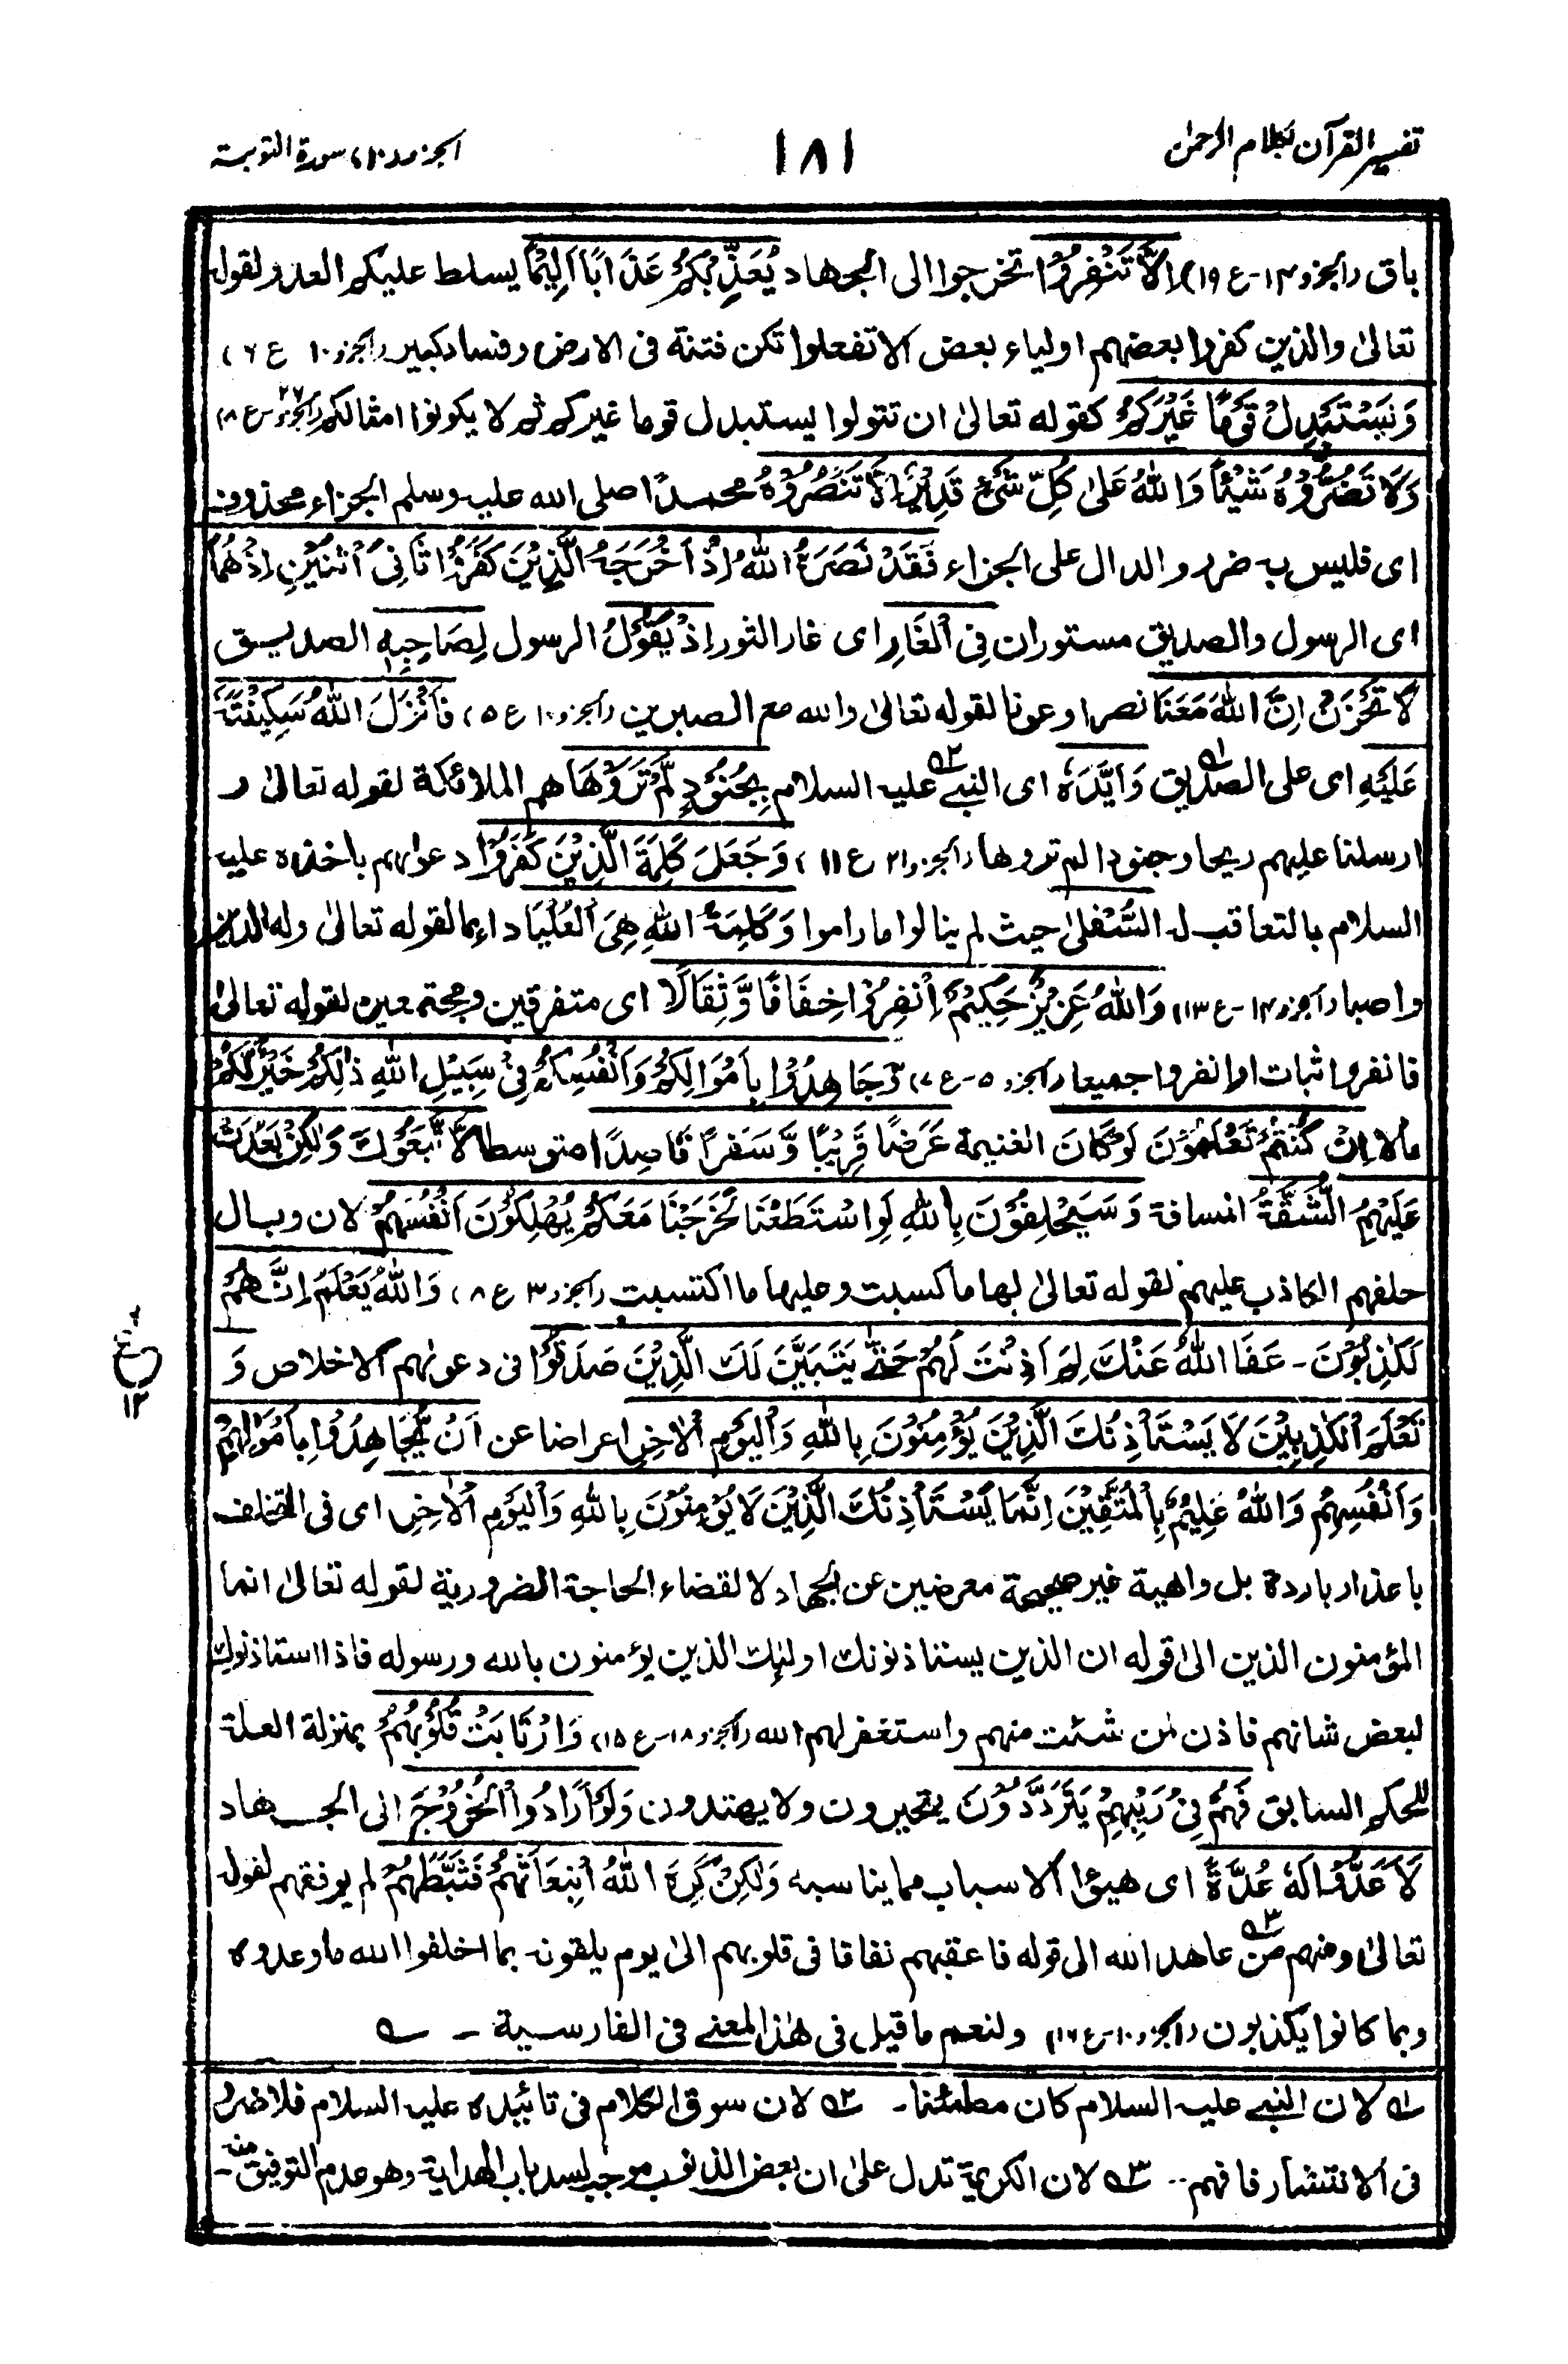 تفسير القرآن بكلام الرحمٰن
١٨١
الجزء (١٠) سورة التوبة
باق (الجزو ١٤-ع ١٩) اِلَّا تَنْفِرُوْا تخرجوا الى الجهاد يُعَذِّبْكُمْ عَذَابًا اَلِيْمًا يسلط عليكم العدو لقوله
تعالىٰ والذين كفروا بعضهم اولياء بعض الا تفعلوا تكن فتنة فى الارض وفساد كبير (الجزو ١٠ ع ٦)
وَيَسْتَبْدِلْ قَوْمًا غَيْرَكُمْ كقوله تعالىٰ ان تتولوا يستبدل قوما غيركم ثم لا يكونوا امثالكم (الجزو ٢٦-ع ٨)
وَلَا تَضُرُّوْهُ شَيْئًا وَاللّٰهُ عَلىٰ كُلِّ شَىْءٍ قَدِيْرٌ اِلَّا تَنْصُرُوْهُ محمدًا صلى الله عليه وسلم الجزاء محذوف
اى فليس به ضرر والدال على الجزاء فَقَدْ نَصَرَهُ اللّٰهُ اِذْ اَخْرَجَهُ الَّذِيْنَ كَفَرُوْا ثَانِىَ اثْنَيْنِ اِذْ هُمَا
اى الرسول والصديق مستوران فِى الْغَارِ اى غار الثور اِذْ يَقُوْلُ الرسول لِصَاحِبِهٖ الصديق
لَا تَحْزَنْ اِنَّ اللّٰهَ مَعَنَا نصرا وعونا لقوله تعالىٰ والله مع الصبرين (الجزو ١٠ ع ٥) فَاَنْزَلَ اللّٰهُ سَكِيْنَتَهٗ
عَلَيْهِ اى على الصديق١ وَاَيَّدَهٗ اى النبى٢ عليه السلام بِجُنُوْدٍ لَّمْ تَرَوْهَا هم الملائكة لقوله تعالىٰ و
ارسلنا عليهم ريحا وجنودا لم تروها (الجزو ٢١ ع ١١) وَجَعَلَ كَلِمَةَ الَّذِيْنَ كَفَرُوْا دعواهم باخذه عليه
السلام بالتعاقب له السُّفْلىٰ حيث لم ينالوا ما راموا وَكَلِمَةُ اللّٰهِ هِىَ الْعُلْيَا دايما لقوله تعالىٰ وله الدين
واصبا (الجزو ١٤-ع ١٣) وَاللّٰهُ عَزِيْزٌ حَكِيْمٌ اِنْفِرُوْا خِفَافًا وَّثِقَالًا اى متفرقين ومجتمعين لقوله تعالىٰ
فانفروا ثبات او انفروا جميعا (الجزو ٥-ع ٧) وَّجَاهِدُوْا بِاَمْوَالِكُمْ وَاَنْفُسِكُمْ فِىْ سِبَيْلِ اللّٰهِ ذٰلِكُمْ خَيْرٌ لَّكُمْ
مآلا اِنْ كُنْتُمْ تَعْلَمُوْنَ لَوْ كَانَ الغنيمة عَرَضًا قَرِيْبًا وَّسَفَرًا قَاصِدًا متوسطا لَّاتَّبَعُوْكَ وَلٰكِنْ بَعُدَتْ
عَلَيْهِمُ الشُّقَّةُ المسافة وَسَيَحْلِفُوْنَ بِاللّٰهِ لَوِ اسْتَطَعْنَا لَخَرَجْنَا مَعَكُمْ يُهْلِكُوْنَ اَنْفُسَهُمْ لان وبال
حلفهم الكاذب عليهم لقوله تعالىٰ لها ما كسبت وعليها ما اكتسبت (الجزو ٣ ع ٨) وَاللّٰهُ يَعْلَمُ اِنَّهُمْ
لَكٰذِبُوْنَ - عَفَا اللّٰهُ عَنْكَ لِمَ اَذِنْتَ لَهُمْ حَتّٰى يَتَبَيَّنَ لَكَ الَّذِيْنَ صَدَقُوْا فى دعوٰهم الاخلاص وَ
تَعْلَمَ الْكٰذِبِيْنَ لَا يَسْتَاْذِنُكَ الَّذِيْنَ يُؤْمِنُوْنَ بِاللّٰهِ وَالْيَوْمِ الْاٰخِرِ اعراضا عن اَنْ يُّجَاهِدُوْا بِاَمْوَالِهِمْ
وَاَنْفُسِهِمْ وَاللّٰهُ عَلِيْمٌ بِالْمُتَّقِيْنَ اِنَّمَا يَسْتَاْذِنُكَ الَّذِيْنَ لَا يُؤْمِنُوْنَ بِاللّٰهِ وَالْيَوْمِ الْاٰخِرِ اى فى التخلف
باعذار باردة بل واهية غير صحيحة معرضين عن الجهاد لا لقضاء الحاجة الضرورية لقوله تعالىٰ انما
المؤمنون الذين الىٰ قوله ان الذين يستاذنونك اولئك الذين يؤمنون بالله ورسوله فاذا استاذنوك
لبعض شانهم فاذن لمن شئت منهم واستغفر لهم الله (الجزو ١٨-ع ١٥) وَارْتَابَتْ قُلُوْبُهُمْ بمنزلة العلة
للحكم السابق فَهُمْ فِىْ رَيْبِهِمْ يَتَرَدَّدُوْنَ يتحيرون ولا يهتدون وَلَوْ اَرَادُوا الْخُرُوْجَ الى الجهاد
لَاَعَدُّوْا لَهٗ عُدَّةً اى هيؤا الاسباب مما يناسبه وَلٰكِنْ كَرِهَ اللّٰهُ انْبِعَاثَهُمْ فَثَبَّطَهُمْ لم يوفقهم لقوله
تعالىٰ ومنهم من٣ عاهد الله الى قوله فاعقبهم نفاقا فى قلوبهم الىٰ يوم يلقونه بما اخلفوا الله ما وعدوه
وبما كانوا يكذبون (الجزو ١٠-ع ١٦) ولنعم ما قيل فى هٰذا المعنى فى الفارسية -
١ لان النبى عليه السلام كان مطمئنا - ٢ لان سوق الكلام فى تائيده عليه السلام فلا ضر
فى الانتشار فافهم - ٣ لان الكريمة تدل علىٰ ان بعض الذنوب موجب لسد باب الهداية وهو عدم التوفيق - منه
ع
١٢